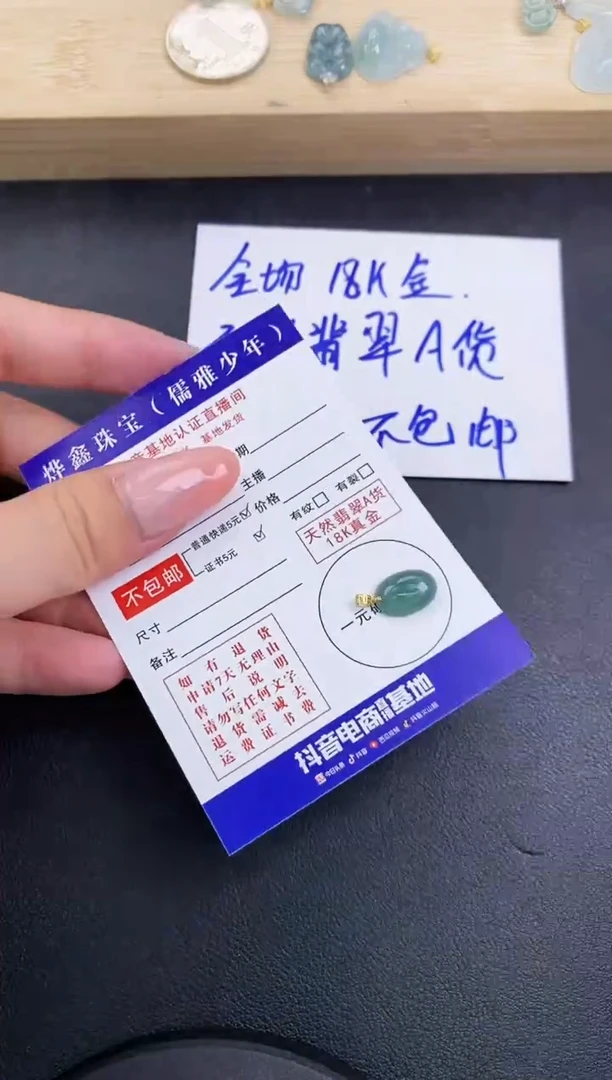 全场 18K金.
翡翠A货
不包邮
烨鑫珠宝（儒雅少年）
音基地认证直播间
基地发货
期
主播
普通快递5元☑ 价格
证书5元 ☑
有纹□ 有裂□
不包邮
天然翡翠A货
18K真金
尺寸
一元硬
备注
如有退货
申请7天无理由
售后说明
请勿写任何文字
退货需减去
运费证书费
抖音电商直播基地
今日头条 抖音 西瓜视频 抖音火山版